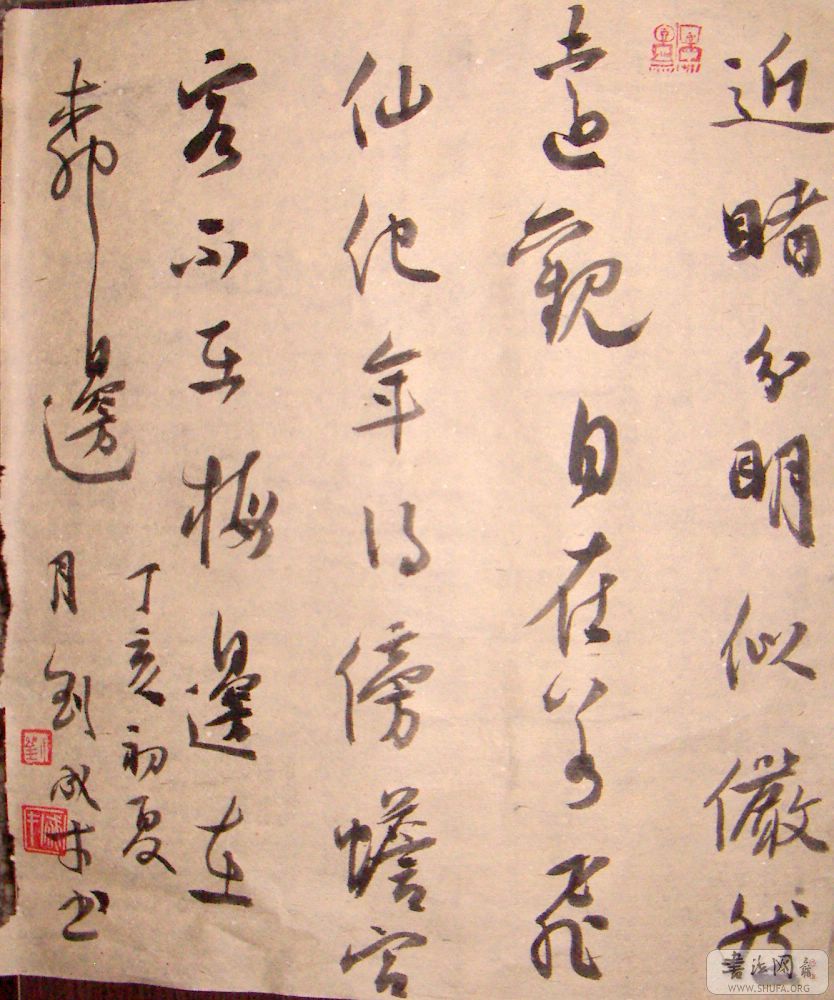 近睹分明似儼然
遠觀自在若飛
仙他年得傍蟾宮
客不在梅邊在
柳邊
丁亥初夏
月劉成书
書法网
WWW.SHUFA.ORG